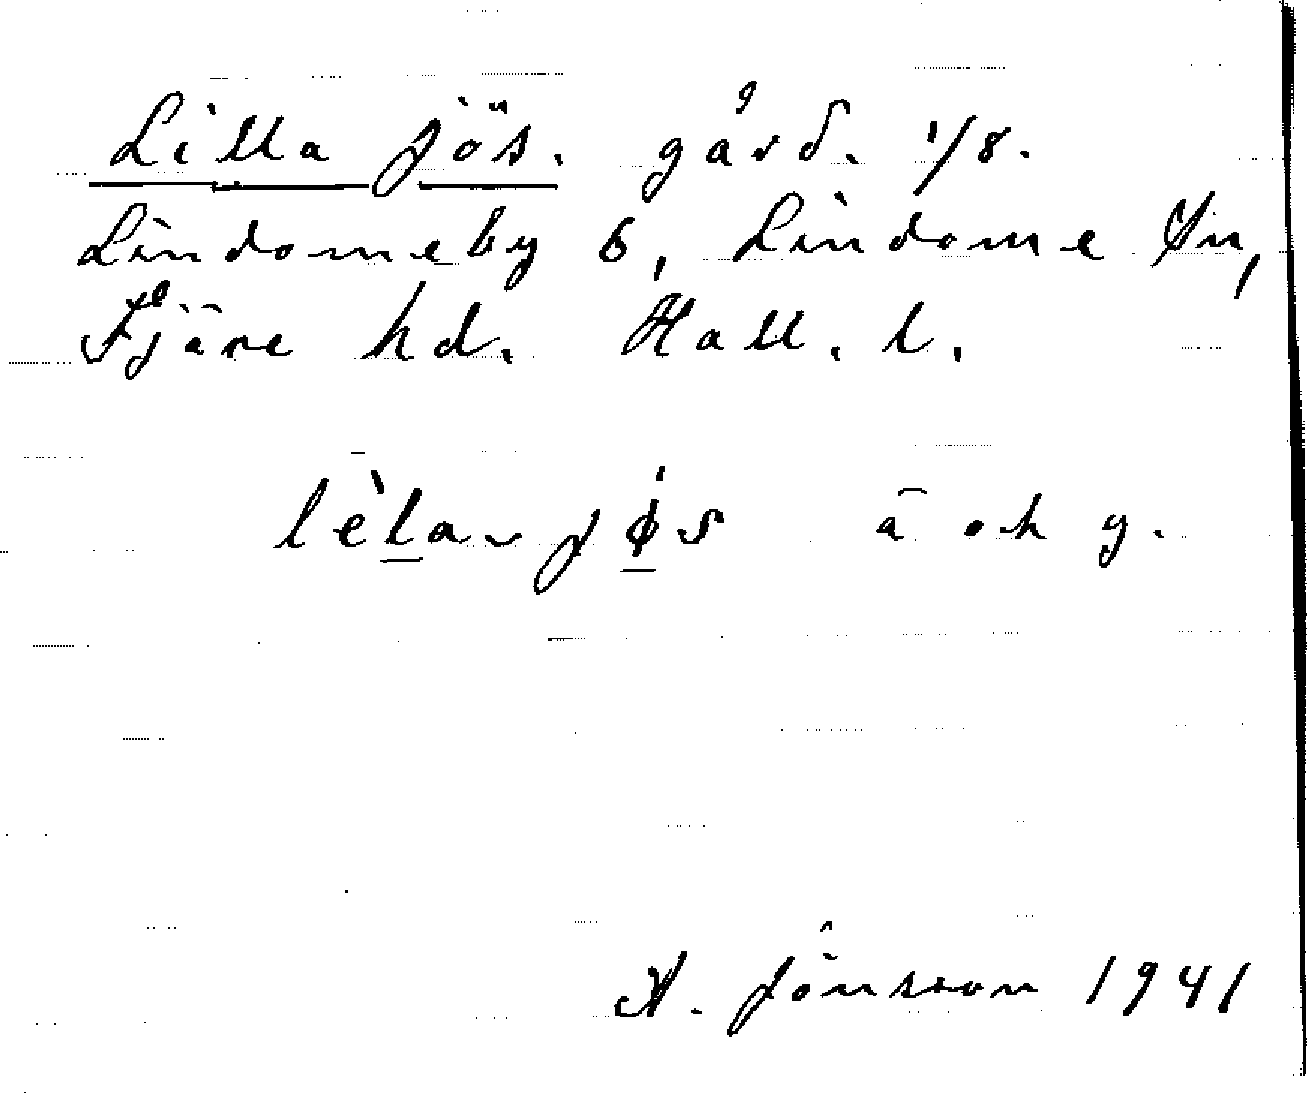 Lilla jös. gård. 1/8.
Lindomeby 6, Lindome sn,
Fjäre hd. Hall. l.
lèla‿jøs ä och y.
A. Jönsson 1941